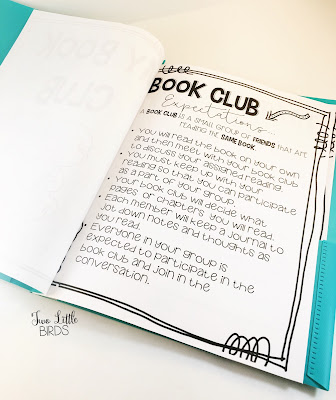 BOOK CLUB
Expectations...
A BOOK CLUB IS A SMALL GROUP OF FRIENDS THAT ARE
READING THE SAME BOOK
• You will read the book on your own
and then meet with your book club
to discuss your assigned reading.
• You must keep up with your
reading so that you can participate
as a part of your group.
• Your book club will decide what
pages or chapters you will read.
• Each member will keep a journal to
jot down notes and thoughts as
you read.
• Everyone in your group is
expected to participate in the
book club and join in the
conversation.
Two Little
BIRDS